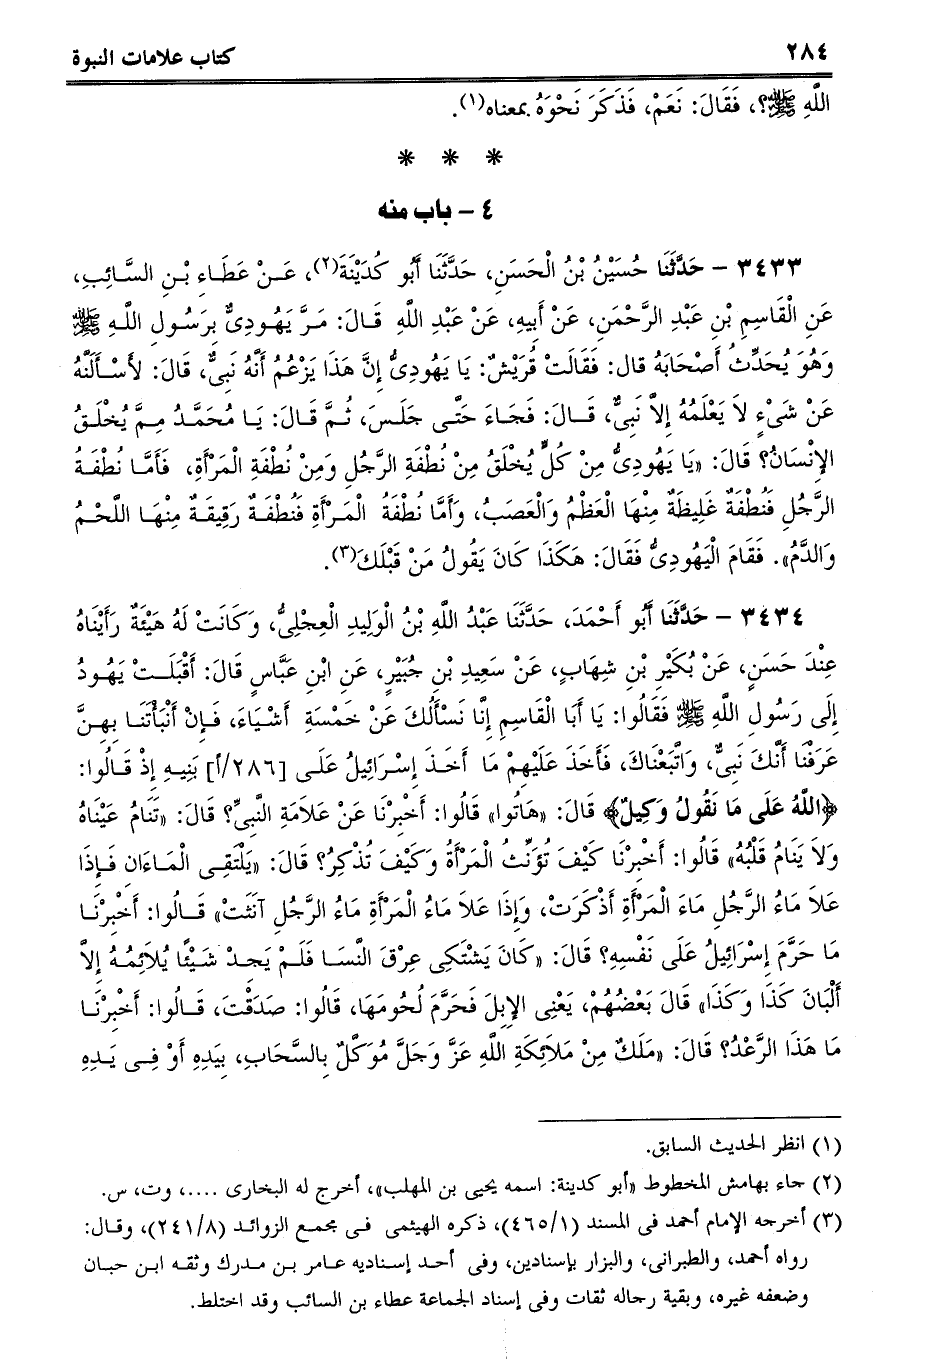 ٢٨٤
كتاب علامات النبوة
اللَّهِ ﷺ؟، فَقَالَ: نَعَمْ، فَذَكَرَ نَحْوَهُ بمعناه(١).
* * *
٤ – باب منه
٣٤٣٣ – حَدَّثَنَا حُسَيْنُ بْنُ الْحَسَنِ، حَدَّثَنَا أَبُو كُدَيْنَةَ(٢)، عَنْ عَطَاءِ بْنِ السَّائِبِ،
عَنِ الْقَاسِمِ بْنِ عَبْدِ الرَّحْمَنِ، عَنْ أَبِيهِ، عَنْ عَبْدِ اللَّهِ قَالَ: مَرَّ يَهُودِىٌّ بِرَسُولِ اللَّهِ ﷺ
وَهُوَ يُحَدِّثُ أَصْحَابَهُ قال: فَقَالَتْ قُرَيْشٌ: يَا يَهُودِىُّ إِنَّ هَذَا يَزْعُمُ أَنَّهُ نَبِىٌّ، قَالَ: لأَسْأَلَنَّهُ
عَنْ شَىْءٍ لاَ يَعْلَمُهُ إِلاَّ نَبِىٌّ، قَالَ: فَجَاءَ حَتَّى جَلَسَ، ثُمَّ قَالَ: يَا مُحَمَّدُ مِمَّ يُخْلَقُ
الإِنْسَانُ؟ قَالَ: «يَا يَهُودِىُّ مِنْ كُلٍّ يُخْلَقُ مِنْ نُطْفَةِ الرَّجُلِ وَمِنْ نُطْفَةِ الْمَرْأَةِ، فَأَمَّا نُطْفَةُ
الرَّجُلِ فَنُطْفَةٌ غَلِيظَةٌ مِنْهَا الْعَظْمُ وَالْعَصَبُ، وَأَمَّا نُطْفَةُ الْمَرْأَةِ فَنُطْفَةٌ رَقِيقَةٌ مِنْهَا اللَّحْمُ
وَالدَّمُ». فَقَامَ الْيَهُودِىُّ فَقَالَ: هَكَذَا كَانَ يَقُولُ مَنْ قَبْلَكَ(٣).
٣٤٣٤ – حَدَّثَنَا أَبُو أَحْمَدَ، حَدَّثَنَا عَبْدُ اللَّهِ بْنُ الْوَلِيدِ الْعِجْلِىُّ، وَكَانَتْ لَهُ هَيْئَةٌ رَأَيْنَاهُ
عِنْدَ حَسَنٍ، عَنْ بُكَيْرِ بْنِ شِهَابٍ، عَنْ سَعِيدِ بْنِ جُبَيْرٍ، عَنِ ابْنِ عَبَّاسٍ قَالَ: أَقْبَلَتْ يَهُودُ
إِلَى رَسُولِ اللَّهِ ﷺ فَقَالُوا: يَا أَبَا الْقَاسِمِ إِنَّا نَسْأَلُكَ عَنْ خَمْسَةِ أَشْيَاءَ، فَإِنْ أَنْبَأْتَنَا بِهِنَّ
عَرَفْنَا أَنَّكَ نَبِىٌّ، وَاتَّبَعْنَاكَ، فَأَخَذَ عَلَيْهِمْ مَا أَخَذَ إِسْرَائِيلُ عَلَى [٢٨٦/أ] بَنِيهِ إِذْ قَالُوا:
﴿اللَّهُ عَلَى مَا نَقُولُ وَكِيلٌ﴾ قَالَ: «هَاتُوا» قَالُوا: أَخْبِرْنَا عَنْ عَلاَمَةِ النَّبِىِّ؟ قَالَ: «تَنَامُ عَيْنَاهُ
وَلاَ يَنَامُ قَلْبُهُ» قَالُوا: أَخْبِرْنَا كَيْفَ تُؤَنِّثُ الْمَرْأَةُ وَكَيْفَ تُذْكِرُ؟ قَالَ: «يَلْتَقِى الْمَاءَانِ فَإِذَا
عَلاَ مَاءُ الرَّجُلِ مَاءَ الْمَرْأَةِ أَذْكَرَتْ، وَإِذَا عَلاَ مَاءُ الْمَرْأَةِ مَاءَ الرَّجُلِ آنَثَتْ» قَالُوا: أَخْبِرْنَا
مَا حَرَّمَ إِسْرَائِيلُ عَلَى نَفْسِهِ؟ قَالَ: «كَانَ يَشْتَكِى عِرْقَ النَّسَا فَلَمْ يَجِدْ شَيْئًا يُلاَئِمُهُ إِلاَّ
أَلْبَانَ كَذَا وَكَذَا» قَالَ بَعْضُهُمْ، يَعْنِى الإِبِلَ فَحَرَّمَ لُحُومَهَا، قَالُوا: صَدَقْتَ، قَالُوا: أَخْبِرْنَا
مَا هَذَا الرَّعْدُ؟ قَالَ: «مَلَكٌ مِنْ مَلاَئِكَةِ اللَّهِ عَزَّ وَجَلَّ مُوَكَّلٌ بِالسَّحَابِ، بِيَدِهِ أَوْ فِى يَدِهِ
(١) انظر الحديث السابق.
(٢) جاء بهامش المخطوط «أبو كدينة: اسمه يحيى بن المهلب»، أخرج له البخارى ....، وت، س.
(٣) أخرجه الإمام أحمد فى المسند (٤٦٥/١)، ذكره الهيثمى فى مجمع الزوائد (٢٤١/٨)، وقال:
رواه أحمد، والطبرانى، والبزار بإسنادين، وفى أحد إسناديه عامر بن مدرك وثقه ابن حبان
وضعفه غيره، وبقية رجاله ثقات وفى إسناد الجماعة عطاء بن السائب وقد اختلط.